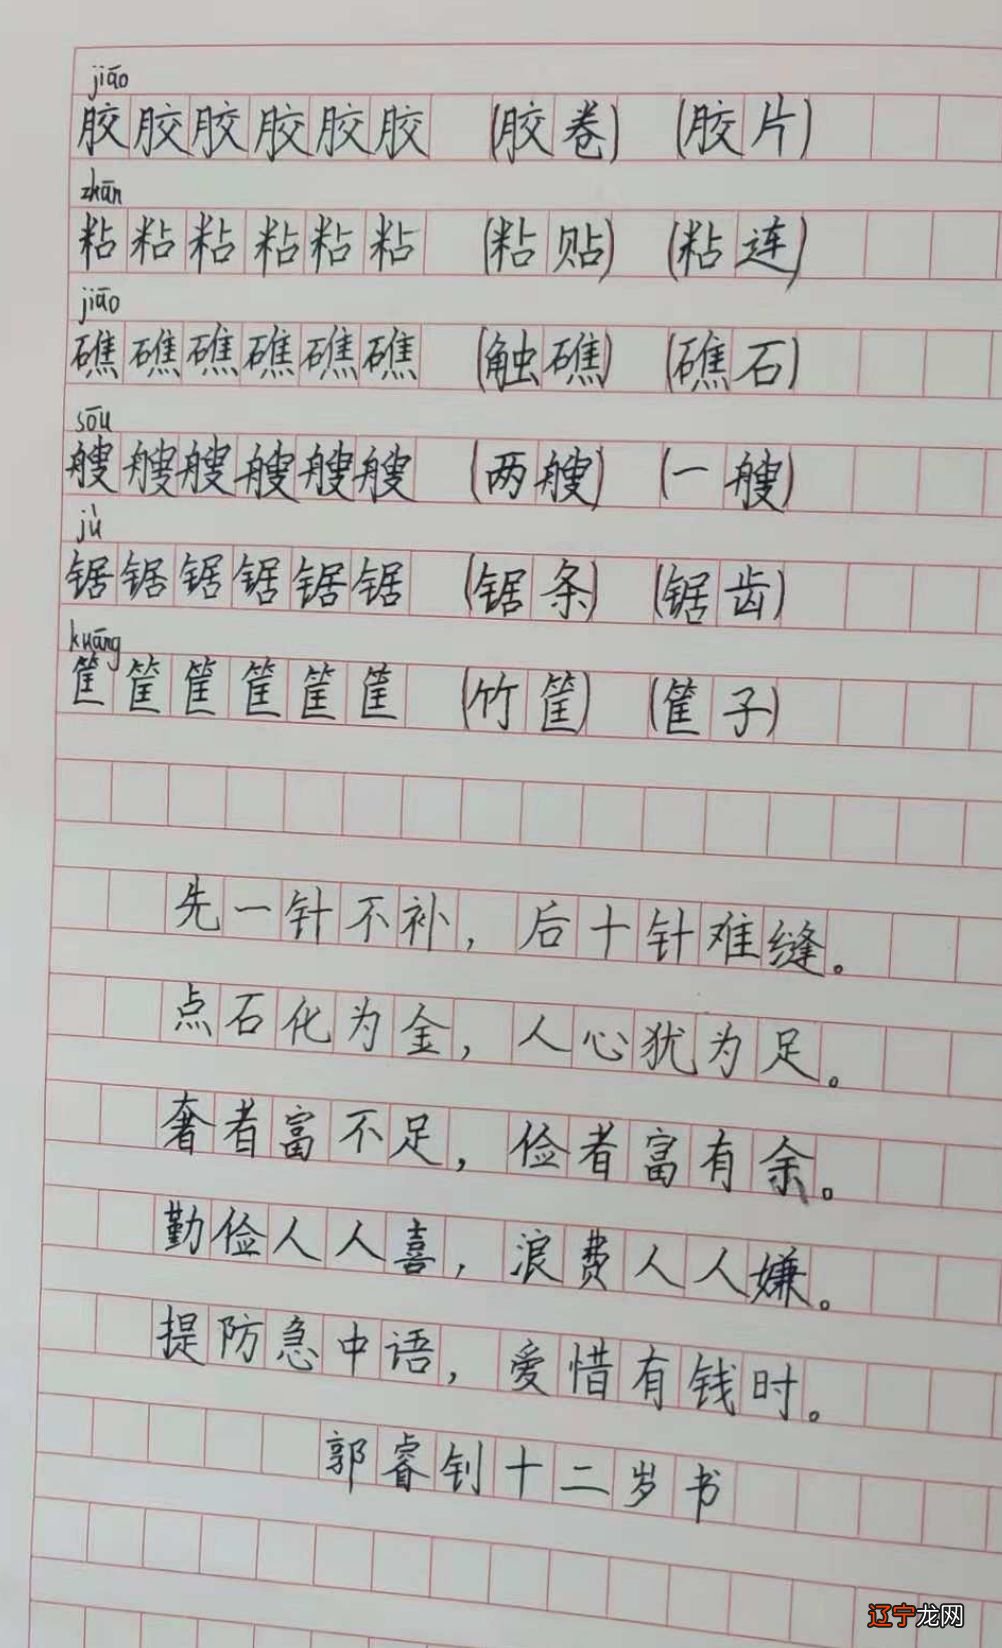 jiāo
胶胶胶胶胶胶 (胶卷) (胶片)
zhān
粘粘粘粘粘粘 (粘贴) (粘连)
jiāo
礁礁礁礁礁礁 (触礁) (礁石)
sōu
艘艘艘艘艘艘 (两艘) (一艘)
jù
锯锯锯锯锯锯 (锯条) (锯齿)
kuāng
筐筐筐筐筐筐 (竹筐) (筐子)
先一针不补，后十针难缝。
点石化为金，人心犹为足。
奢者富不足，俭者富有余。
勤俭人人喜，浪费人人嫌。
提防急中语，爱惜有钱时。
郭睿钊十二岁书
辽宁龙网